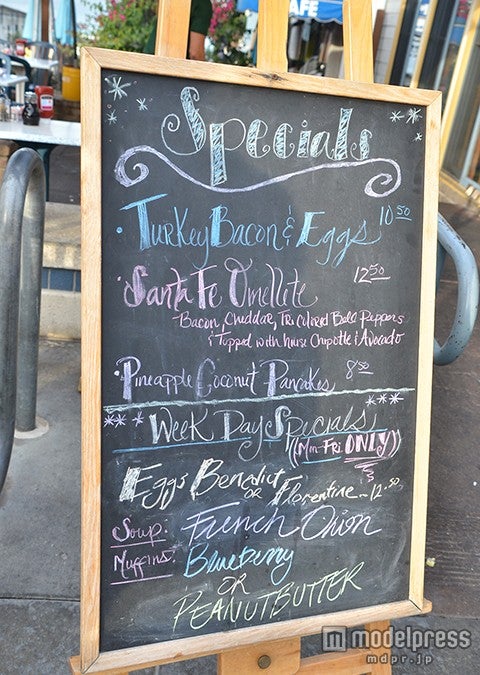 CAFE
Specials
· Turkey Bacon & Eggs 10.50
· Santa Fe Omellite 12.50
-Bacon, Cheddar, Tri Colored Bell Peppers
& Topped with house Chipotle & Avocado
· Pineapple Coconut Pancakes 8.50
*** Week Day Specials ***
((Mon-Fri ONLY))
Eggs Benedict
or Florentine - 12.50
Soup: French Onion
Muffins: Blueberry
OR
PEANUTBUTTER
modelpress
mdpr.jp